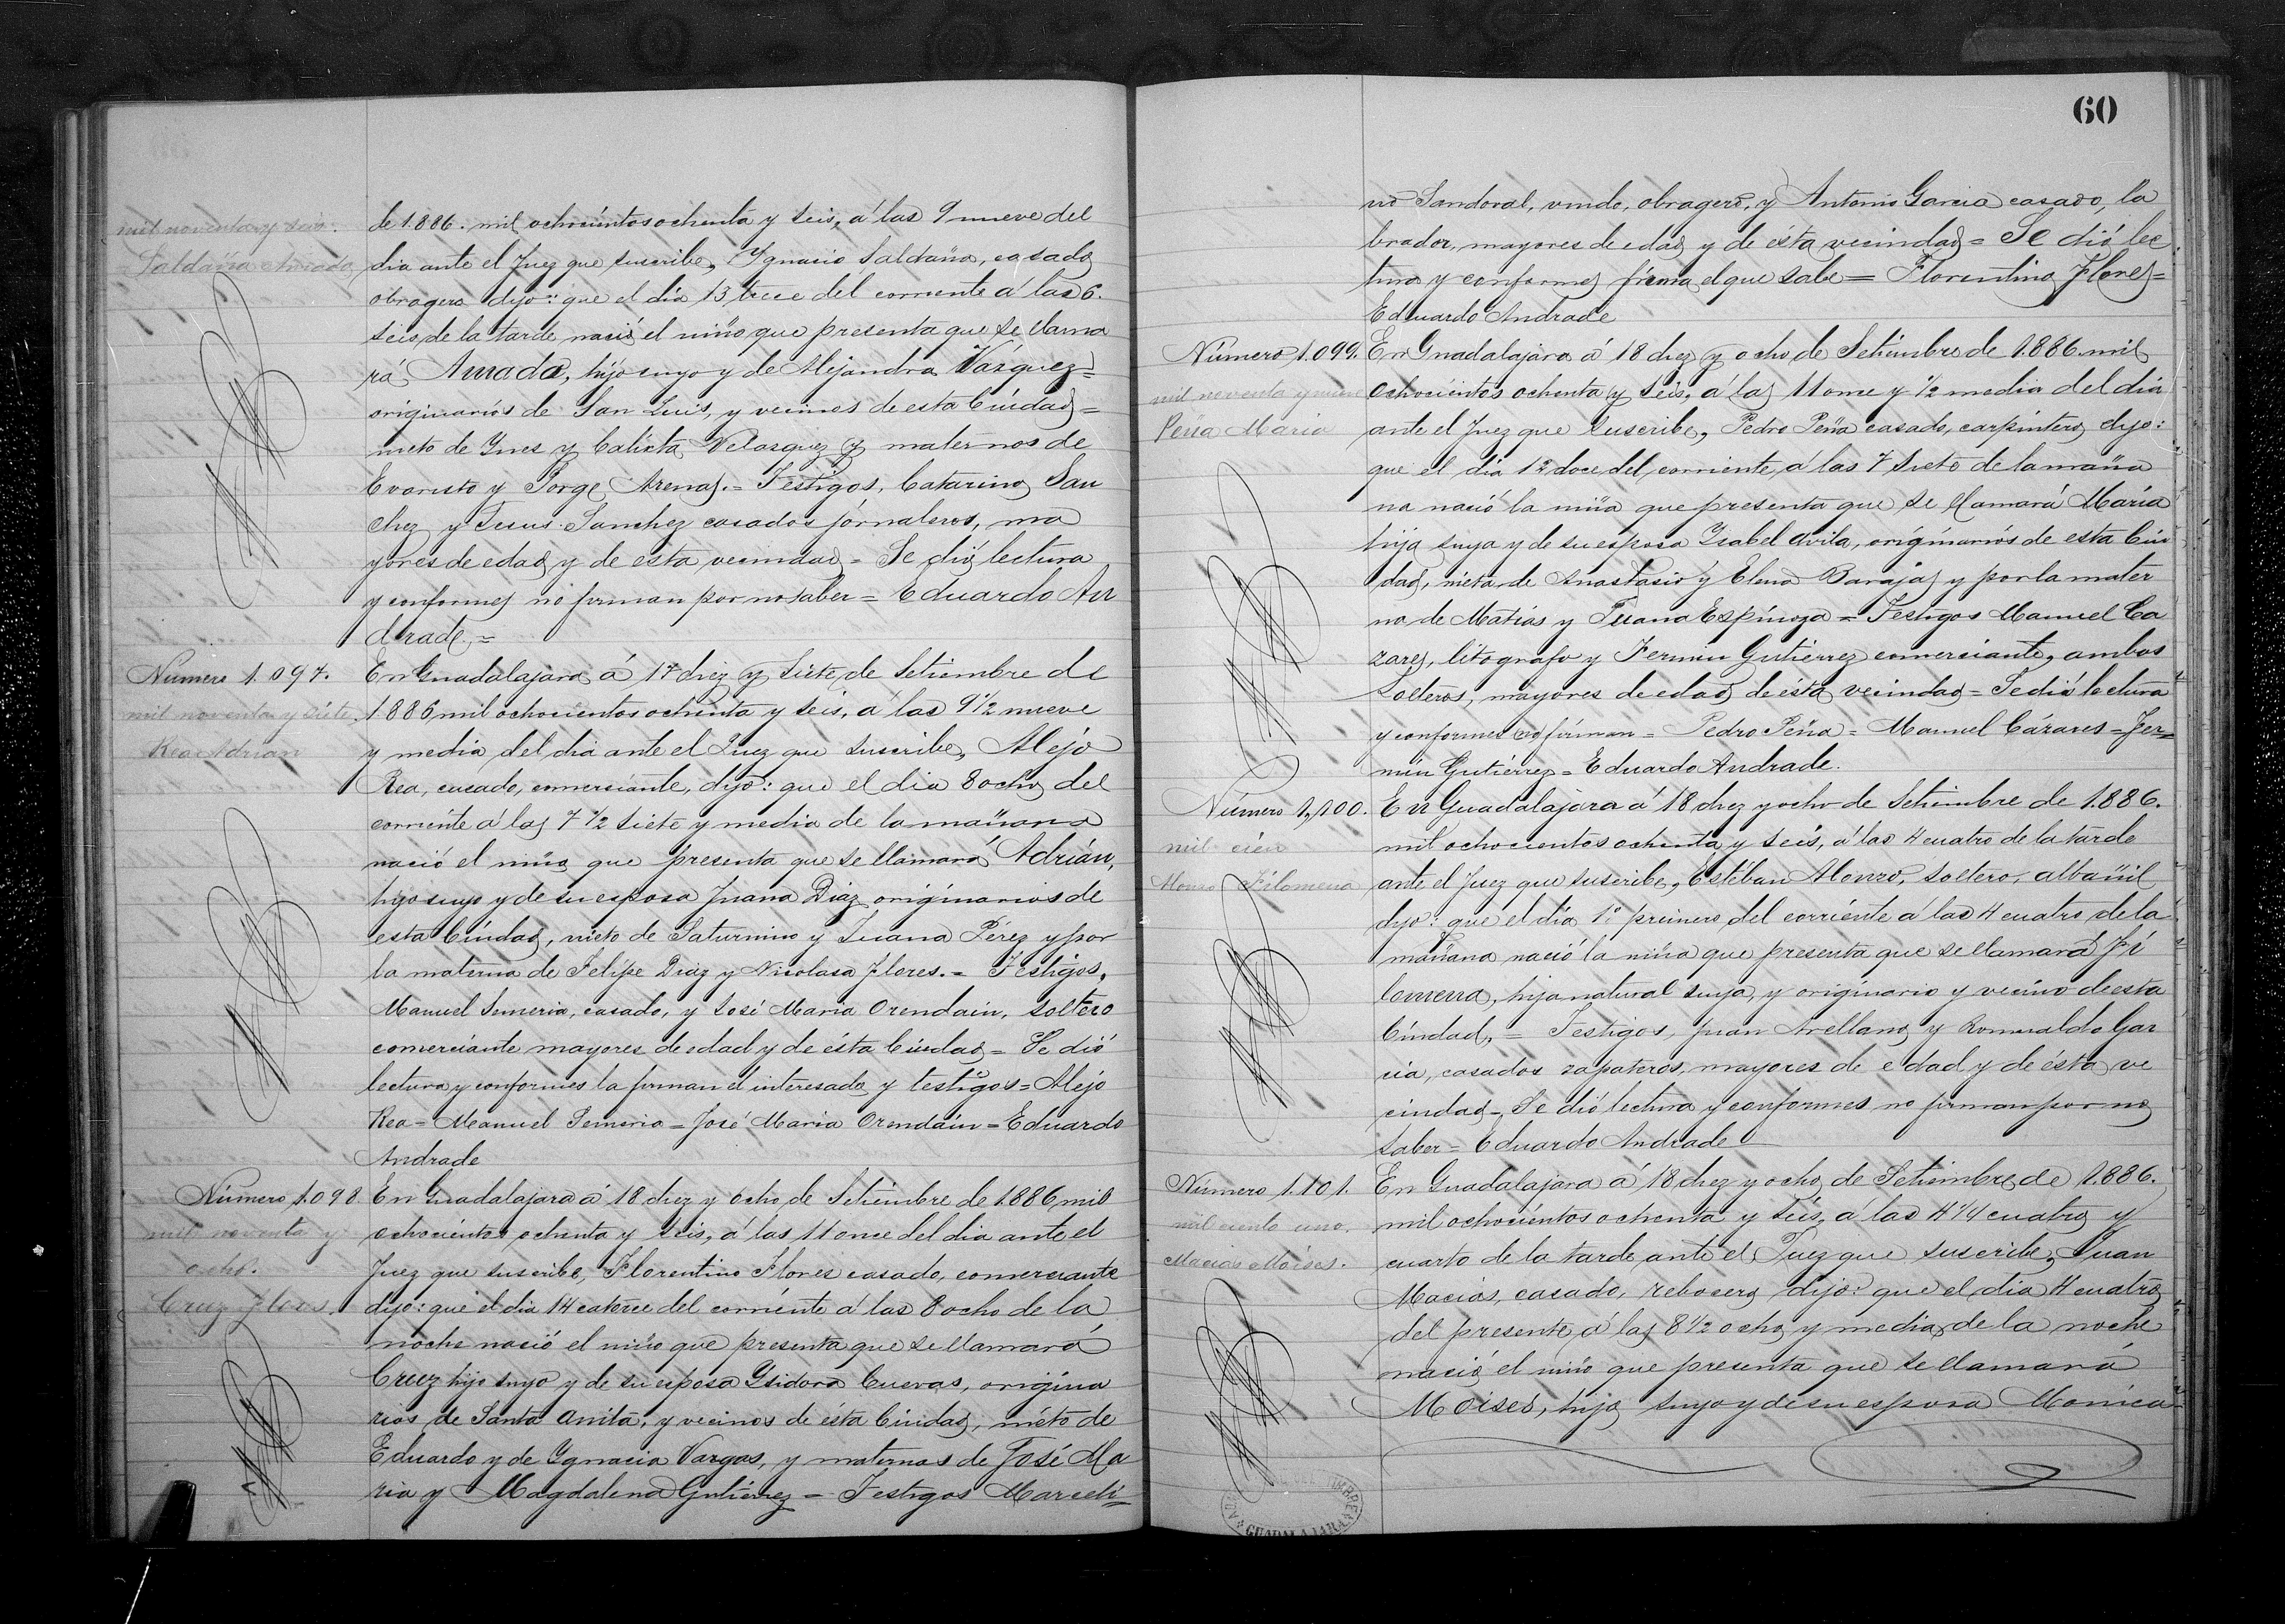 mil noventa y seis.
Saldaña Amado
de 1.886. mil ochocientos ochenta y seis, á las 9 nueve del
dia ante el Juez que suscribe, Ygnacio Saldaña, casado
obragero dijo: que el dia 13 trece del corriente á las 6.
seis de la tarde nació el niño que presenta que se llama
rá Amado, hijo suyo y de Alejandra Vázquez=
originarios de San Luis, y vecinos de esta Ciudad=
nieto de Ynes y Calista Velasquez y maternos de
Evaristo y Jorge Arenas.= Testigos, Catarino San
chez y Jesus Sanchez casados jornaleros, ma
yores de edad y de esta vecindad= Se dió lectura
y conformes no firman por no saber= Eduardo An
drade.=
Número 1.097.
mil noventa y siete.
Rea Adrian
En Guadalajara á 17 diez y siete de Setiembre de
1.886 mil ochocientos ochenta y seis, á las 9 1/2 nueve
y media del dia ante el Juez que suscribe, Alejo
Rea, casado, comerciante, dijo: que el dia 8 ocho del
corriente á las 7 1/2 siete y media de la mañana
nació el niño que presenta que se llamará Adrián,
hijo suyo y de su esposa Juana Díaz originarios de
esta Ciudad, nieto de Saturnino y Juana Pérez y por
la materna de Felipe Diaz y Nicolasa Flores.= Testigos,
Manuel Semeria, casado, y José Maria Orendain, soltero
comerciante mayores de edad y de ésta Ciudad= Se dió
lectura y conformes la firman el interesado y testigos= Alejo
Rea= Manuel Semeria= José Maria Orendáin= Eduardo
Andrade
Número 1.098
mil noventa y
ocho.
Cruz Flores.
En Guadalajara á 18 diez y ocho de Setiembre de 1.886 mil
ochocientos ochenta y seis, á las 11 once del dia ante el
Juez que suscribe, Florentino Flores casado, comerciante
dijo: que el dia 14 catorce del corriente á las 8 ocho de la
noche nació el niño que presenta que se llamará
Cruz hijo suyo y de su esposa Ysidora Cuevas, origina
rios de Santa Anita, y vecinos de ésta Ciudad, nieto de
Eduardo y de Ygnacia Vargas, y maternos de José Ma
ria y Magdalena Gutiérrez= Testigos Marceli=
60
no Sandoval, viudo, obragero, y Antonio Garcia casado, la
brador, mayores de edad y de ésta vecindad= Se dió lec
tura y conformes firma el que sabe= Florentino Flores=
Eduardo Andrade
Número 1.099.
mil noventa y nueve
Peña Maria
En Guadalajara á 18 diez y ocho de Setiembre de 1.886. mil
ochocientos ochenta y seis, á las 11 once y 1/2 media del dia
ante el Juez que suscribe, Pedro Peña casado, carpintero dijo:
que el dia 12 doce del corriente, á las 7 siete de la maña
na nació la niña que presenta que se llamará María
hija suya y de su esposa Ysabel Avila, originarios de esta Ciu
dad, nieta de Anastasio y Elena Barajas y por la mater
na de Matias y Juana Espinoza= Testigos Manuel Cá
zares, litografo y Fermin Gutiérrez comerciante, ambos
solteros, mayores de edad de ésta vecindad= Se dió lectura
y conformes firman= Pedro Peña= Manuel Cázares= Fer=
mín Gutiérrez= Eduardo Andrade.
Número 1,100.
mil cien
Alonzo Filomena
En Guadalajara á 18 diez y ocho de Setiembre de 1.886.
mil ochocientos ochenta y seis, á las 4 cuatro de la tarde
ante el Juez que suscribe, Estéban Alonzo, soltero, albañil
dijo: que el dia 1º primero del corriente á las 4 cuatro de la
mañana nació la niña que presenta que se llamará Fi
lomena, hija natural suya, y originario y vecino de esta
Ciudad,= Testigos, Juan Arellano y Romualdo Gar
cia, casados zapateros, mayores de edad y de ésta ve
cindad= Se dió lectura y conformes no firman por no
saber= Eduardo Andrade
Número 1.101.
mil ciento uno.
Macias Moises.
En Guadalajara á 18 diez y ocho de Setiembre de 1.886.
mil ochocientos ochenta y seis, á las 4 1/4 cuatro y
cuarto de la tarde ante el Juez que suscribe, Juan
Macías, casado, rebocero dijo: que el dia 4 cuatro
del presente á las 8 1/2 ocho y media de la noche
nació el niño que presenta que se llamará
Moises, hijo suyo y de su esposa Monica
GUADALAJARA